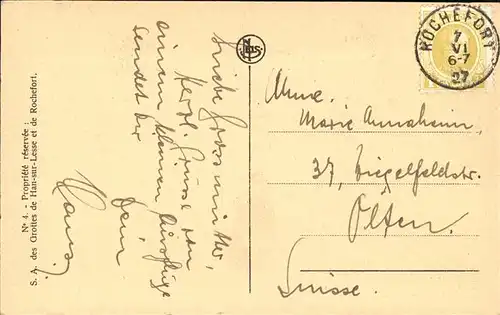 Nº 4. - Propriété réservée :
S. A. des Grottes de Han-sur-Lesse et de Rochefort.
Liebe Grossmutter,
Herzl. Grüsse von
einem kleinen Ausfluge
sendet Dir
Dein
Hansj
NELS
ROCHEFORT
7
VI
6-7
27
Mme.
Marie Annaheim,
37, Ziegelfeldstr.
Olten.
Suisse.